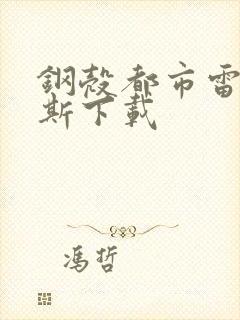 鋼殼都市雷
斯下載
馮哲